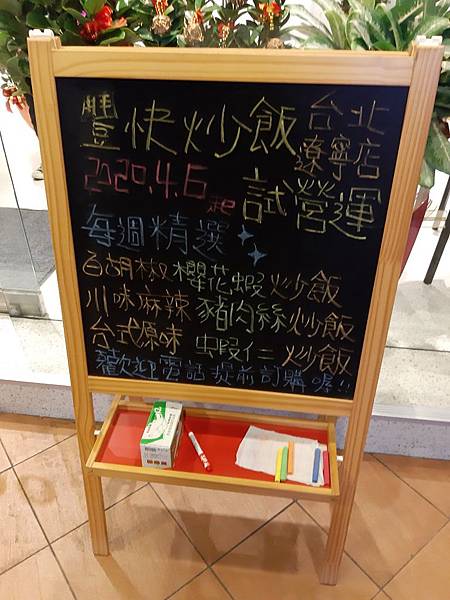 豐快炒飯 台北
遼寧店
2020.4.6起 試營運
每週精選
白胡椒櫻花蝦炒飯
川味麻辣豬肉絲炒飯
台式原味 蝦仁炒飯
歡迎電話提前訂購唷!!